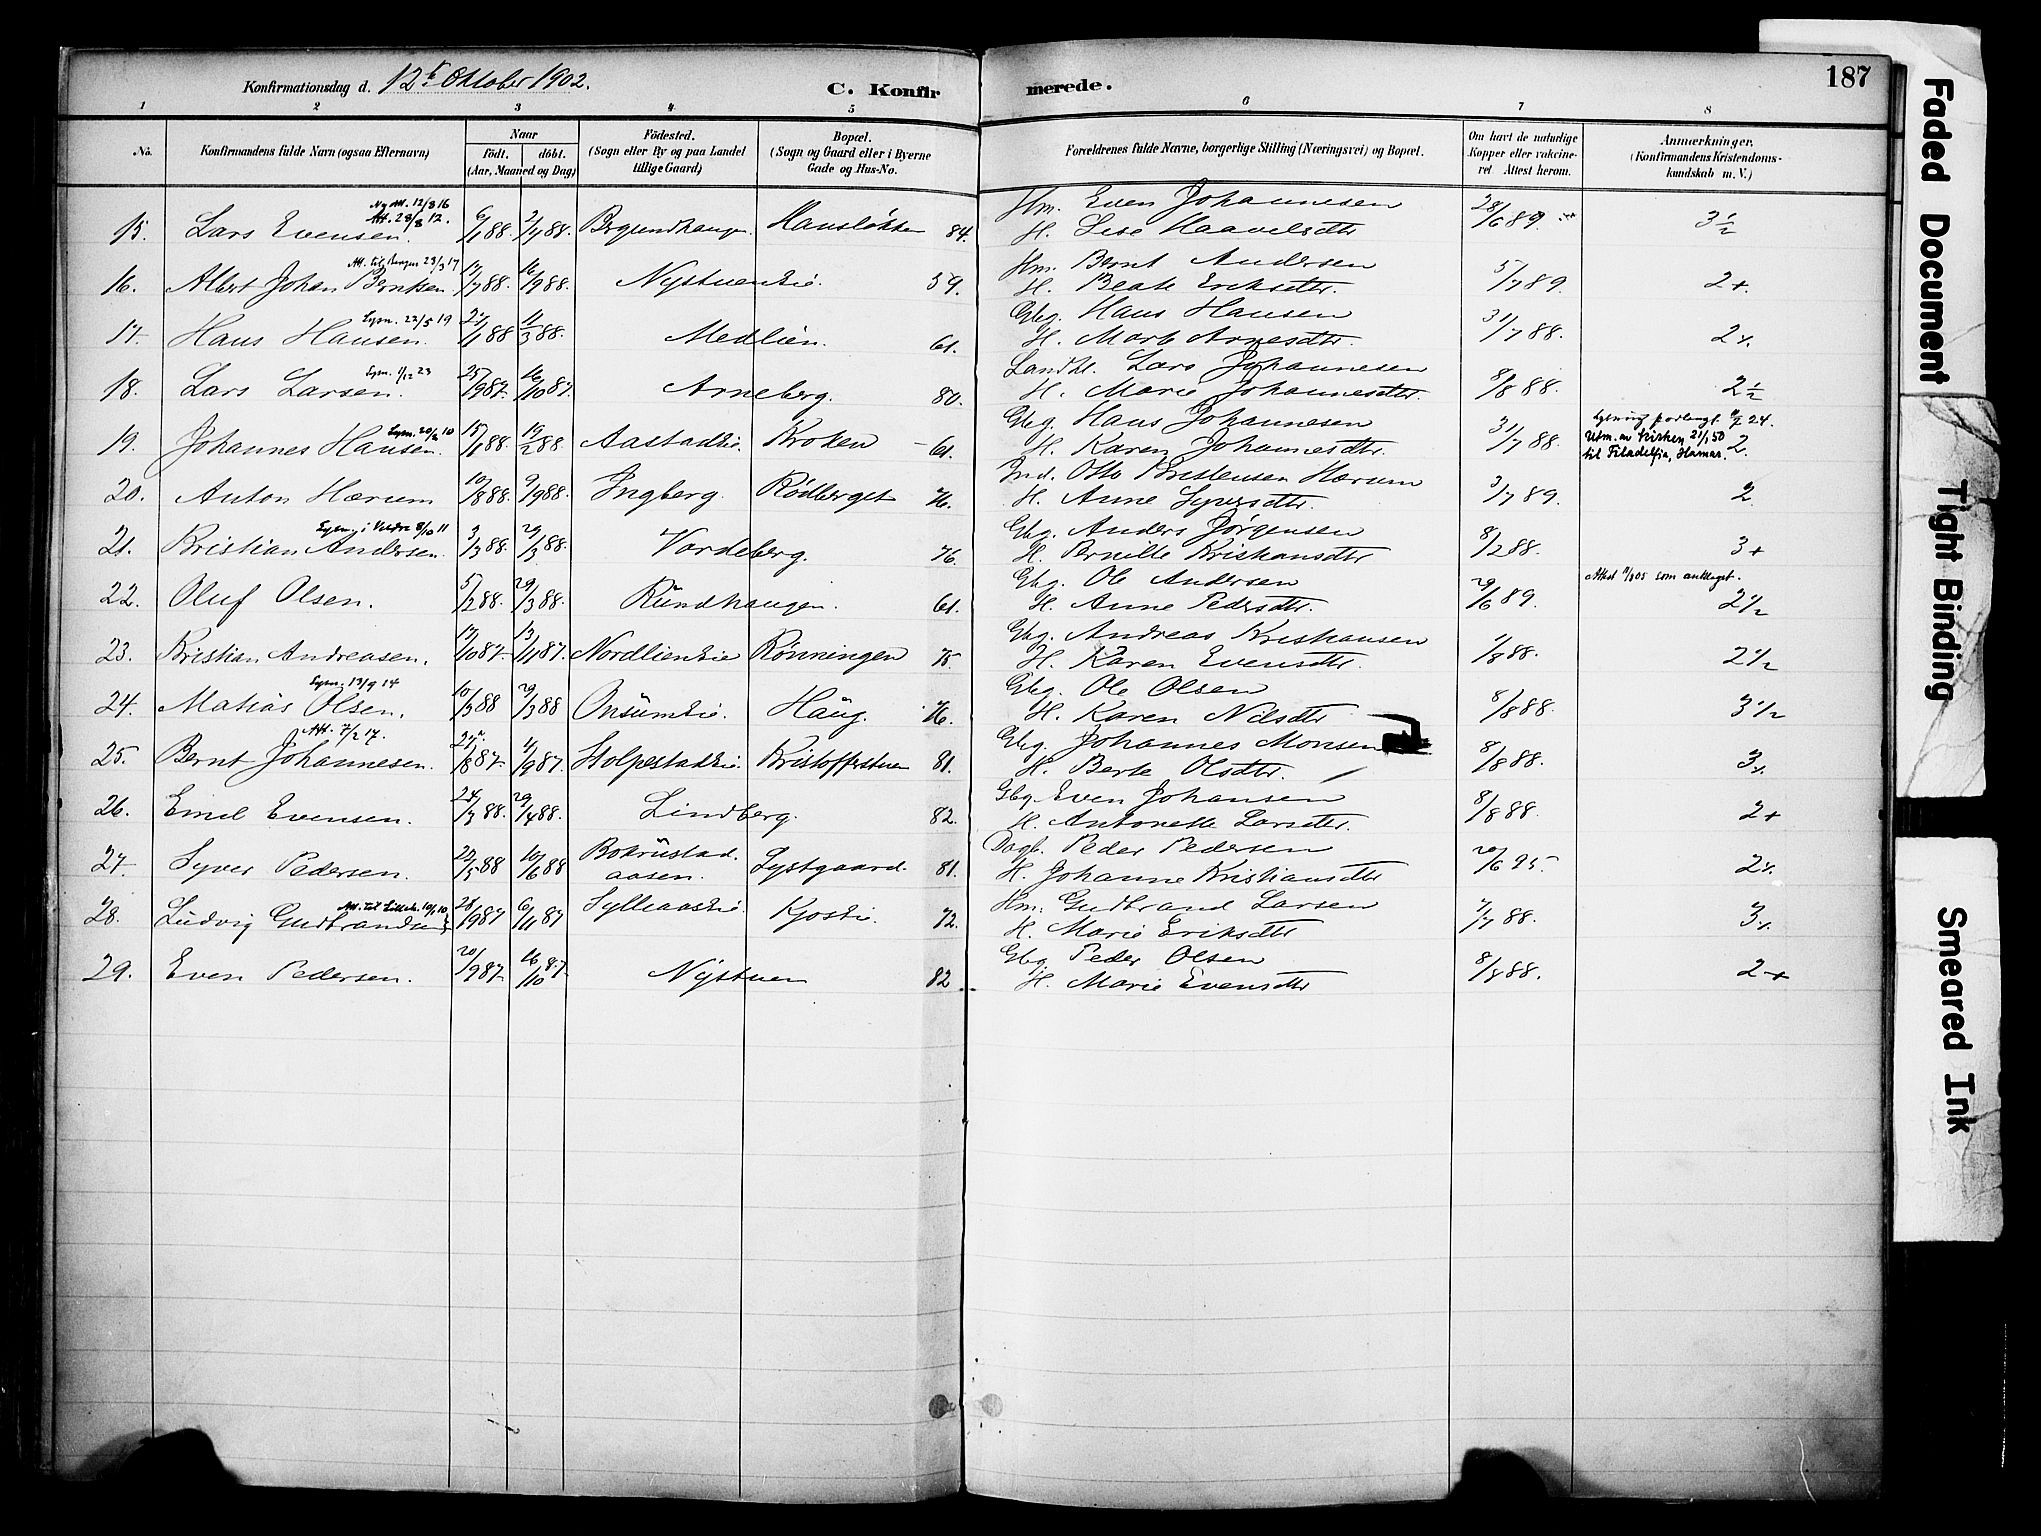 Konfirmationsdag d. 12te Oktober 1902.
C. Konfir merede. 187
1 2 3 4 5 6 7 8
No. Konfirmandens fulde Navn (ogsaa Efternavn) Naar født. døbt. (Aar, Maaned og Dag) Fødested. (Sogn eller By og paa Landet tillige Gaard) Bopæl. (Sogn og Gaard eller i Byerne Gade og Hus-No. Forældrenes fulde Navne, borgerlige Stilling (Næringsvei) og Bopæl. Om havt de naturlige Kopper eller vakcineret. Attest herom. Anmærkninger. (Konfirmandens Kristendomskundskab m. V.)
Ny Att. 12/3 16
Att. 28/8 12.
15. Lars Evensen. 6/1 88 2/4 88. Hansløkken 84. Hm. Even Johannesen 28/6 89. 3 1/2
H. Lise Haavelsdtr
Att. til Bergen 23/3 17
16. Albert Johan Berntsen. 13/7 88. 16/9 88. Nystueneie. 59. Hm. Bernt Andersen 5/7 89. 2+.
H. Beate Eriksdtr.
Lysn. 22/5 19
17. Hans Hansen. 21/1 88 11/3 88. Medlien. 61. Gbg. Hans Hansen 31/7 88. 2+.
H. Marte Arnesdtr.
Lysn. 1/12 23
18. Lars Larsen. 25/9 87. 16/10 87. Arneberg. 80. Landh. Lars Johannesen 8/8 88. 2 1/2
H. Marie Johannesdtr.
Lysn. 20/2 10
19. Johannes Hansen. 15/1 88. 19/2 88. Aastadeie Kroken 61. Gbg. Hans Johannesen 31/7 88. Lysning forlengt 24.
H. Karen Johannesdtr. Utm. av kirken 21/1 50 2.
til Filadelfia, Hamar.
20. Anton Hærum 10/8 88. 9/9 88. Ingberg. Rødberget 76. Ind. Otto Kristensen Hærum 3/7 89. 2
H. Anne Syversdtr.
Lysn. i Veldre 8/10 11
21. Kristian Andersen. 3/3 88. 29/3 88. Vardeberg. 76. Gbg. Anders Jørgensen 8/2 88. 3+
H. Pernille Kristiansdtr
22. Oluf Olsen. 5/2 88. 29/3 88. Rundhaugen. 61. Gbg. Ole Andersen 29/6 89. Attest 11/8 05 som antaget.
H. Anne Pedersdtr. 2 1/2
23. Kristian Andreasen. 17/10 87. 13/11 87. Nordlieneie Rønningen 75. Gbg. Andreas Kristiansen 1/8 88. 2 1/2
H. Karen Evensdtr.
Lysn. 13/9 14
24. Matias Olsen. 10/3 88 29/3 88 Onsumeie. Haug. 76. Gbg. Ole Olsen 8/8 88. 3 1/2
H. Karen Nilsdtr
Att. 7/2 17.
25. Bernt Johannesen. 27/8 87. 4/9 87. Stolpestadeie. Kristofferstuen 81. Gbg. Johannes Monsen 8/8 88. 3+.
H. Berte Olsdtr.
26. Emil Evensen. 24/3 88. 29/4 88. Lindberg. 82. Gbg. Even Johansen 8/8 88. 2+
H. Antonette Larsdtr.
27. Syver Pedersen. 22/5 88 10/6 88 Bokrustad- Lystgaard. 81. Dagb. Peder Pedersen 20/6 95. 2+.
aasen. H. Johanne Kristiansdtr
Att. til Lilleh. 10/1 10
28. Ludvig Gudbrandsen 28/9 87 6/11 87 Sylleaaseie. Kjoseie. 72. Hm. Gudbrand Larsen 7/7 88. 3+.
H. Marie Eriksdtr
29. Even Pedersen. 20/9 87. 16/10 87. Nystuen 82. Gbg. Peder Olsen 8/8 88. 2+
H. Marie Evensdtr
Faded Document
Tight Binding
Smeared Ink